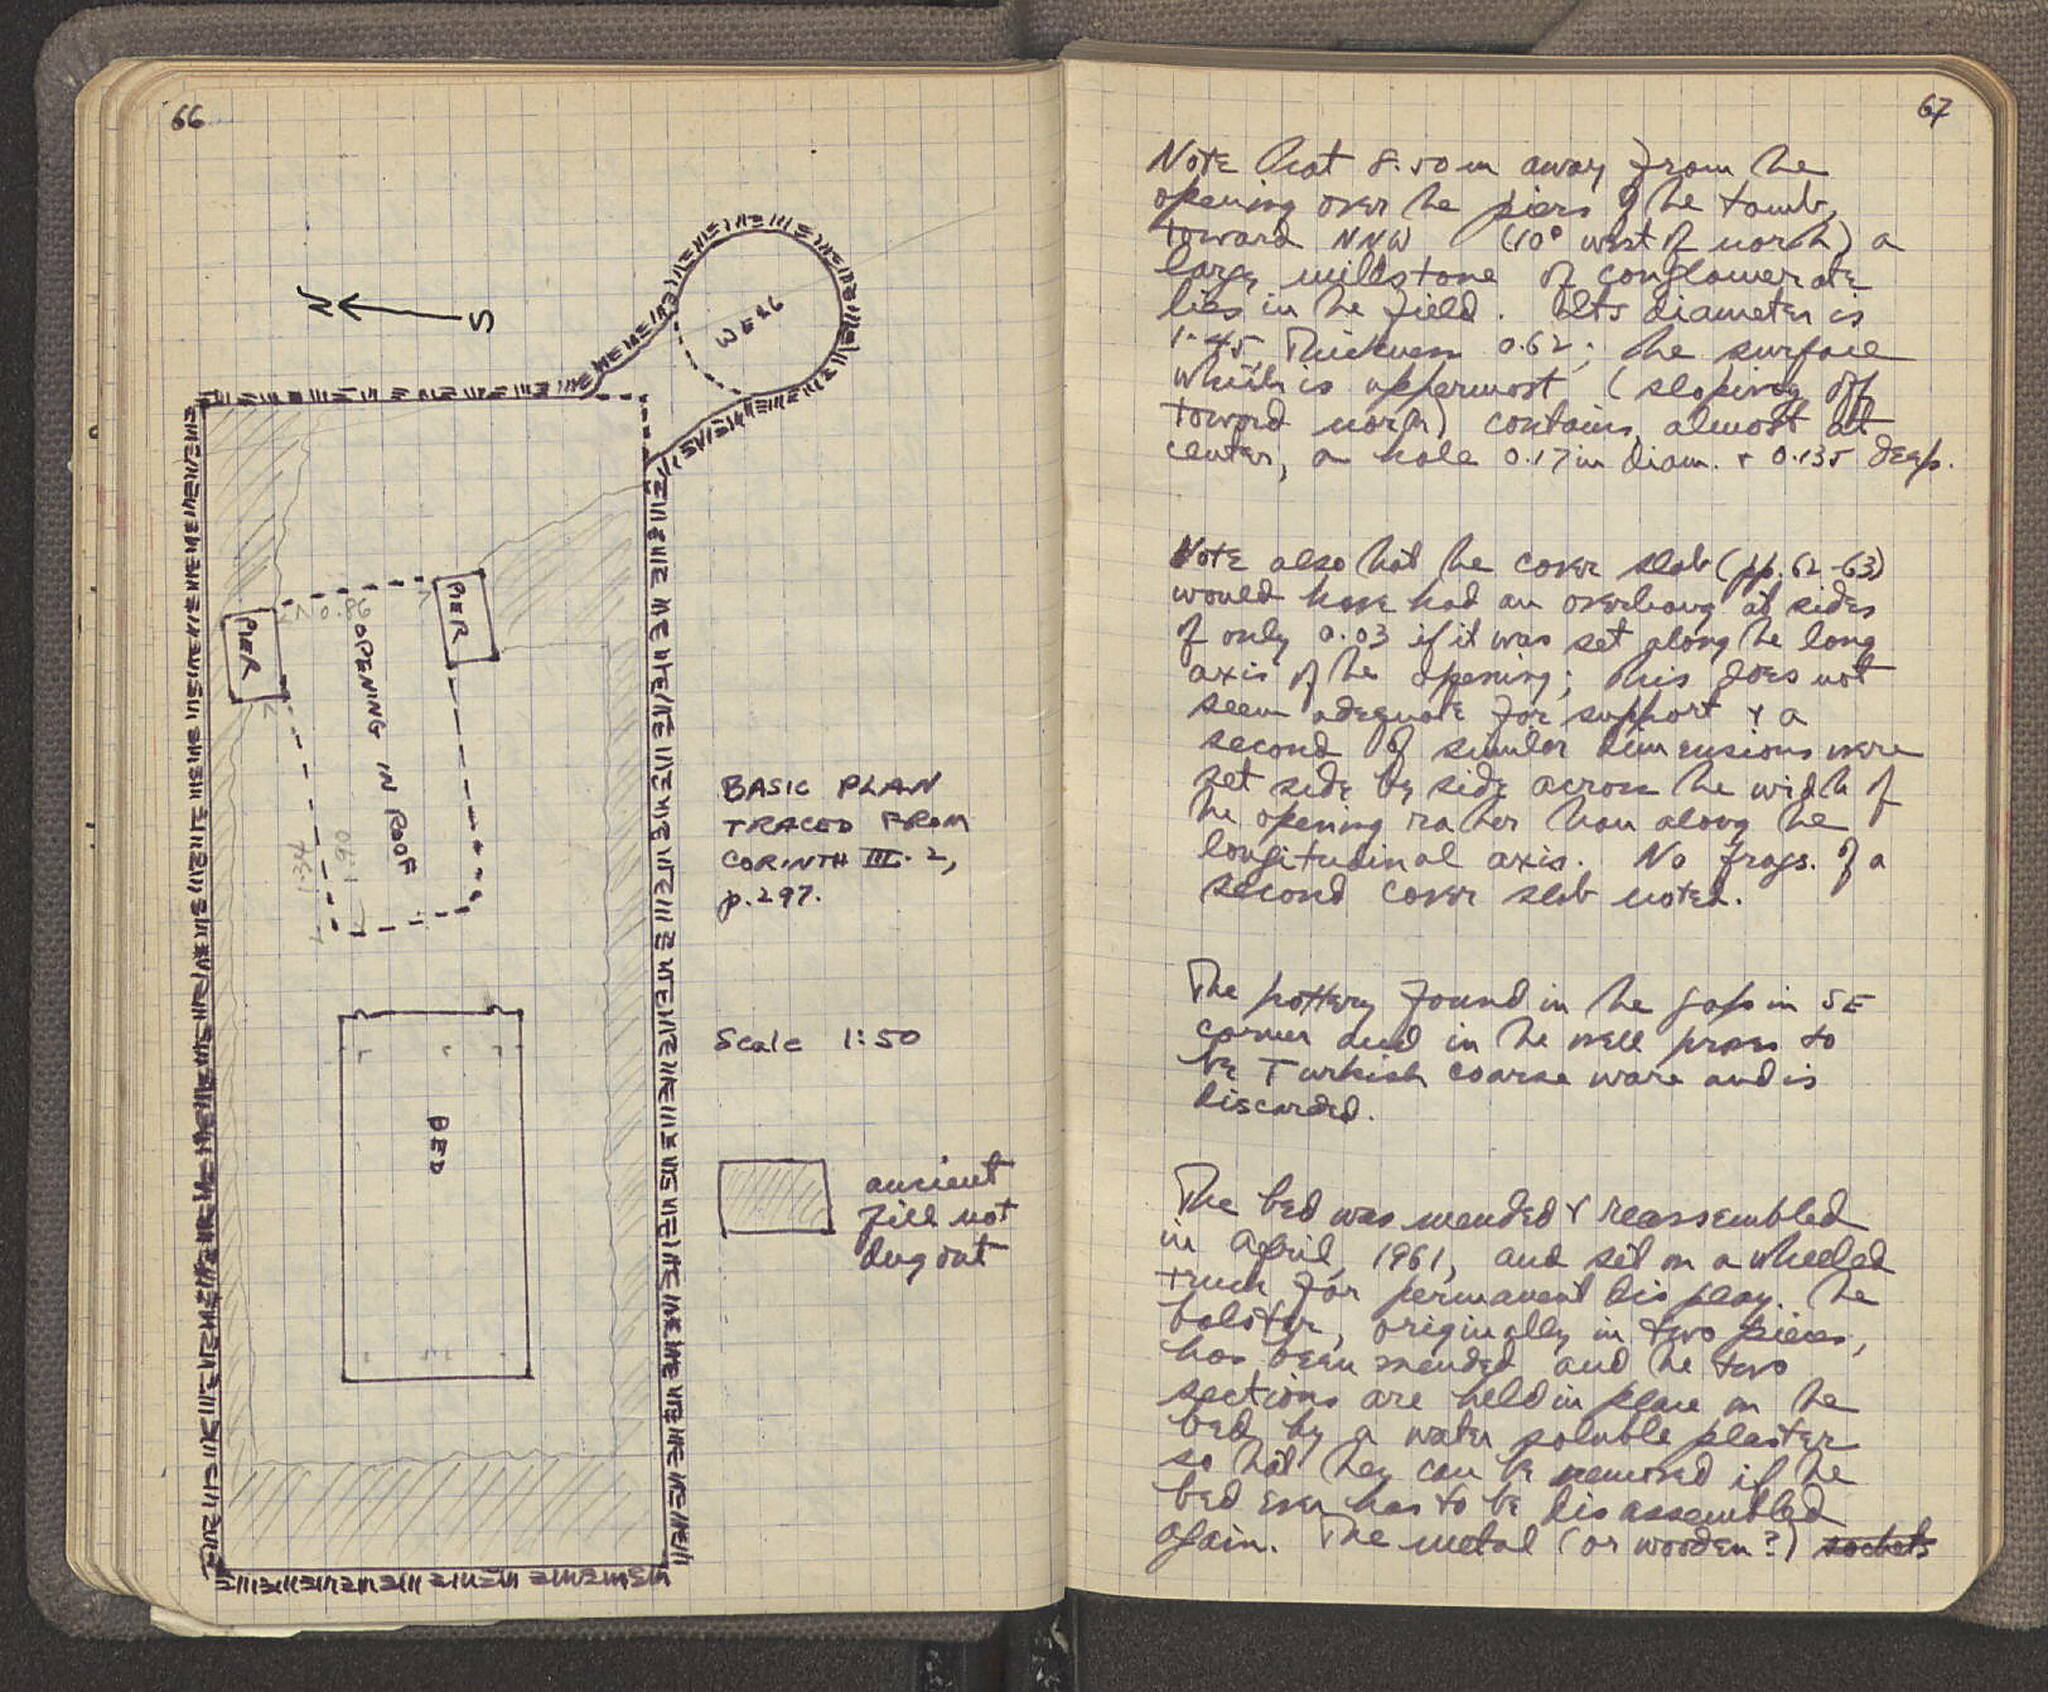 66
N
S
WELL
PIER
0.86
PIER
OPENING IN ROOF
1.34
1.90
BED
BASIC PLAN
TRACED FROM
CORINTH III.2,
p.297.
Scale 1:50
ancient
fill not
dug out
67
Note that 8.50 m away from the
opening over the piers of the tomb,
toward NNW (10° west of north) a
large millstone of conglomerate
lies in the field. Its diameter is
1.45, Thickness 0.62; the surface
which is uppermost (sloping off
toward north) contains, almost at
center, a hole 0.17 in diam. + 0.135 deep.
Note also that the cover slab (pp. 62-63)
would have had an overhang at sides
of only 0.03 if it was set along the long
axis of the opening; this does not
seem adequate for support + a
second of similar dimensions were
set side by side across the width of
the opening rather than along the
longitudinal axis. No frags. of a
second cover slab noted.
The pottery found in the gap in SE
corner and in the well proves to
be Turkish coarse ware and is
discarded.
The bed was mended + reassembled
in April, 1961, and set on a wheeled
truck for permanent display. The
bolster, originally in two pieces,
has been mended and the two
sections are held in place on the
bed by a water soluble plaster
so that they can be removed if the
bed ever has to be disassembled
again. The metal (or wooden?) sockets